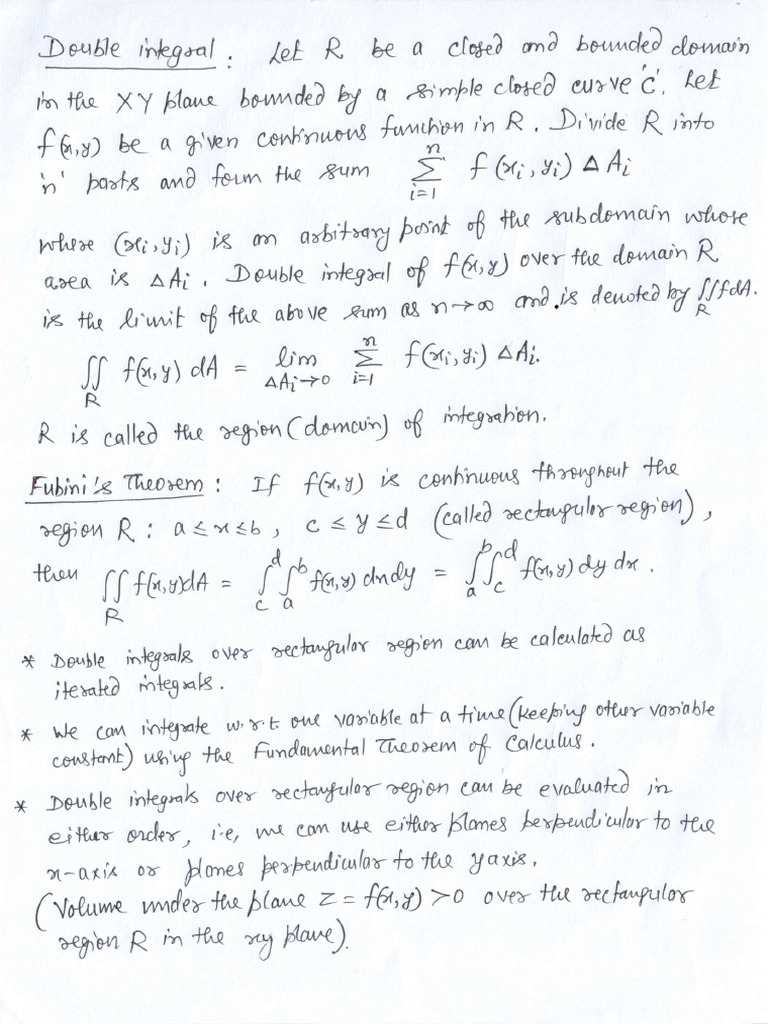 Double integral : Let R be a closed and bounded domain
in the XY plane bounded by a simple closed curve 'c'. Let
f(x,y) be a given continuous function in R. Divide R into
'n' parts and form the sum ∑_{i=1}^{n} f(xi, yi) Δ Ai
where (xi, yi) is an arbitrary point of the subdomain whose
area is ΔAi. Double integral of f(x,y) over the domain R
is the limit of the above sum as n→∞ and is denoted by ∬_R f dA.
∬_R f(x,y) dA = lim_{ΔAi→0} ∑_{i=1}^{n} f(xi, yi) ΔAi.
R is called the region (domain) of integration.
Fubini's Theorem : If f(x,y) is continuous throughout the
region R : a ≤ x ≤ b, c ≤ y ≤ d (called rectangular region),
then ∬_R f(x,y)dA = ∫_c^d ∫_a^b f(x,y) dx dy = ∫_a^b ∫_c^d f(x,y) dy dx.
* Double integrals over rectangular region can be calculated as
iterated integrals.
* We can integrate w.r.t. one variable at a time (keeping other variable
constant) using the Fundamental Theorem of Calculus.
* Double integrals over rectangular region can be evaluated in
either order, i.e, we can use either planes perpendicular to the
x-axis or planes perpendicular to the y axis.
(Volume under the plane Z = f(x,y) > 0 over the rectangular
region R in the xy plane).